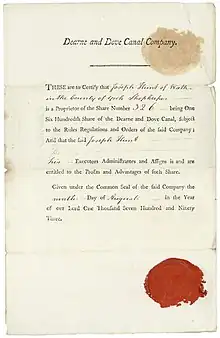 Dearne and Dove Canal Company.
THESE are to Certify that Joseph Hunt of Wath
in the County of York Shopkeeper
is a Proprietor of the Share Number 326 being One
Six Hundredth Share of the Dearne and Dove Canal, subject
to the Rules Regulations and Orders of the said Company;
And that the said Joseph Hunt
his Executors Administrators and Assigns is and are
entitled to the Profits and Advantages of such Share.
Given under the Common Seal of the said Company the
ninth Day of August in the Year
of our Lord One Thousand Seven Hundred and Ninety
Three.